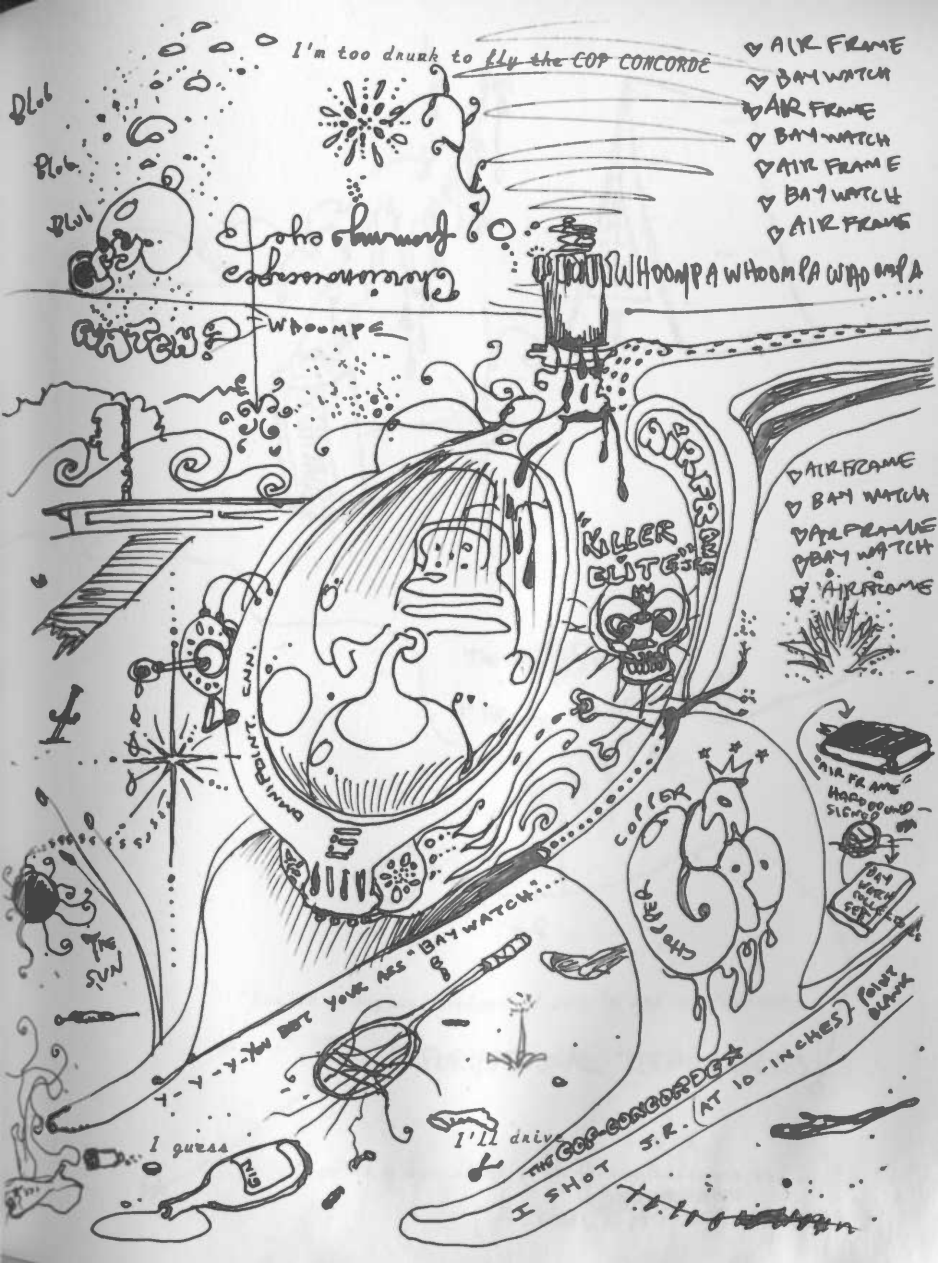 I'm too drunk to fly the COP CONCORDE
AIR FRAME
BAY WATCH
AIR FRAME
BAY WATCH
AIR FRAME
BAY WATCH
AIR FRAME
Blub
Blub
Blub
from my eye
WHOOMPA WHOOMPA WHOOMPA
WHOOMPE
AIRFRAME
"KILLER
ELITE"
AIRFRAME
BAY WATCH
AIRFRAME
BAY WATCH
AIRFRAME
OMNIPOINT. INC
COPPER
CHOPPER
"AIR FRAME"
HARDBOUND
SIGNED
BAY
WATCH
THE
SUN
Y-Y-Y-YOU BET YOUR ARS "BAYWATCH"
I guess
GIN
I'll drive
THE COP-CONCORDE
I SHOT J.R. (AT 10-INCHES) POINT
BLANK